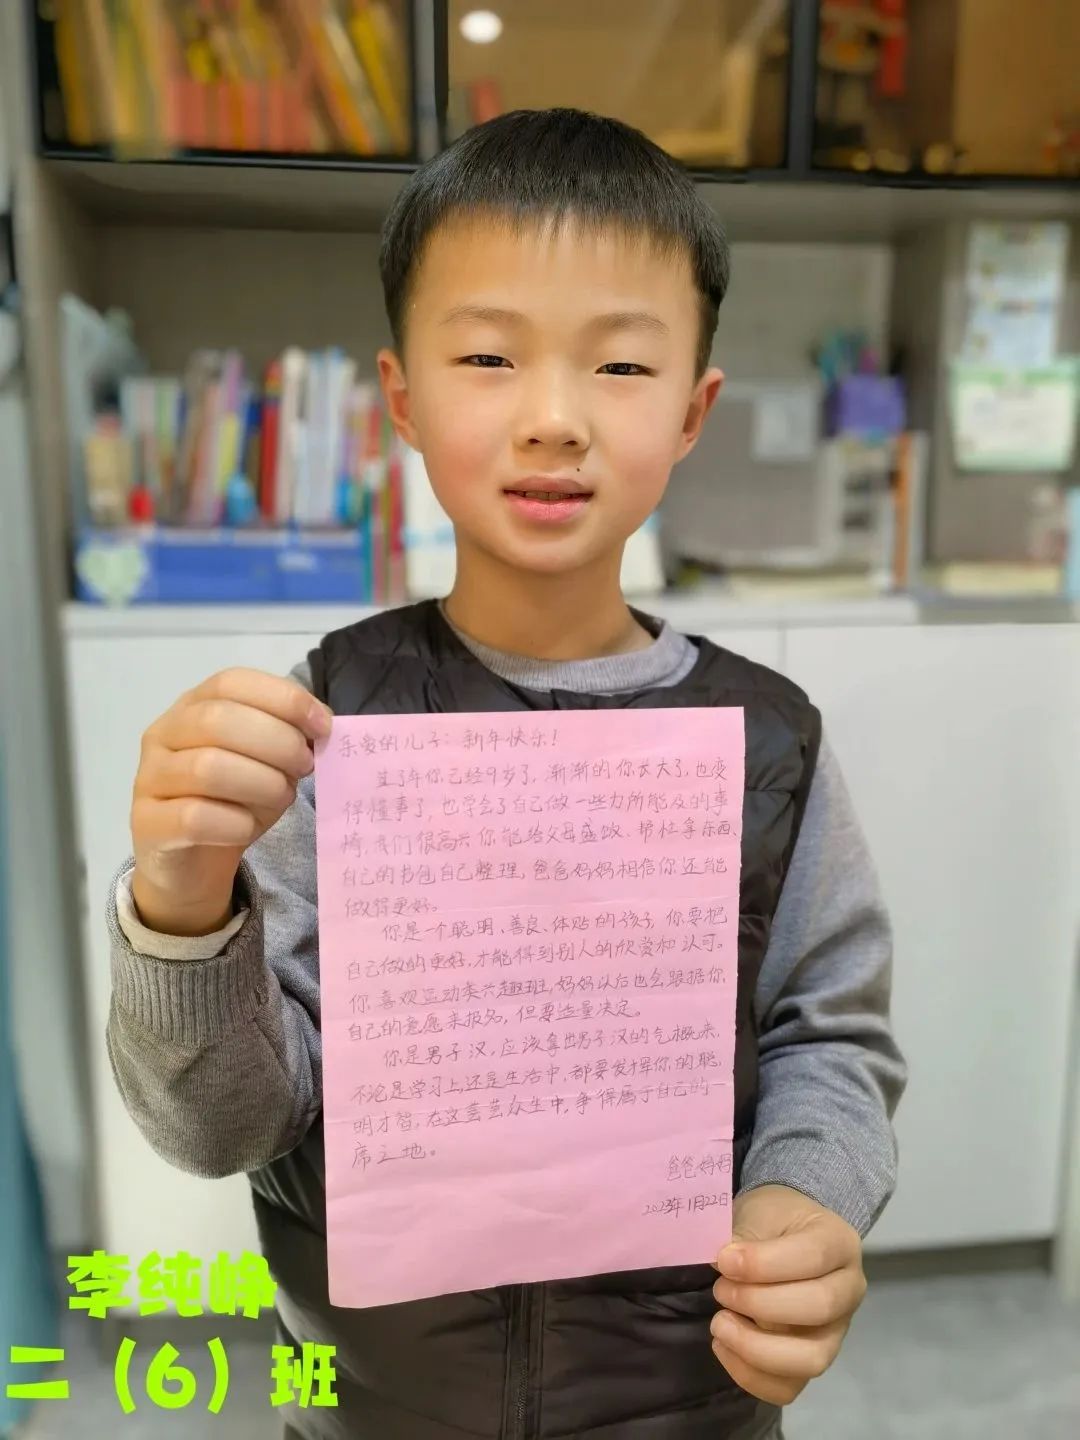 亲爱的儿子：新年快乐！
过了年你已经9岁了，渐渐的你长大了，也变
得懂事了，也学会了自己做一些力所能及的事
情，我们很高兴你能给父母盛饭、帮忙拿东西、
自己的书包自己整理，爸爸妈妈相信你还能
做得更好。
你是一个聪明、善良、体贴的孩子，你要把
自己做的更好，才能得到别人的欣赏和认可。
你喜欢运动类兴趣班，妈妈以后也会跟据你
自己的意愿来报名，但要适量决定。
你是男子汉，应该拿出男子汉的气概来，
不论是学习上还是生活中，都要发挥你的聪
明才智，在这芸芸众生中，争得属于自己的一
席之地。
爸爸妈妈
2023年1月22日
李纯峥
二（6）班